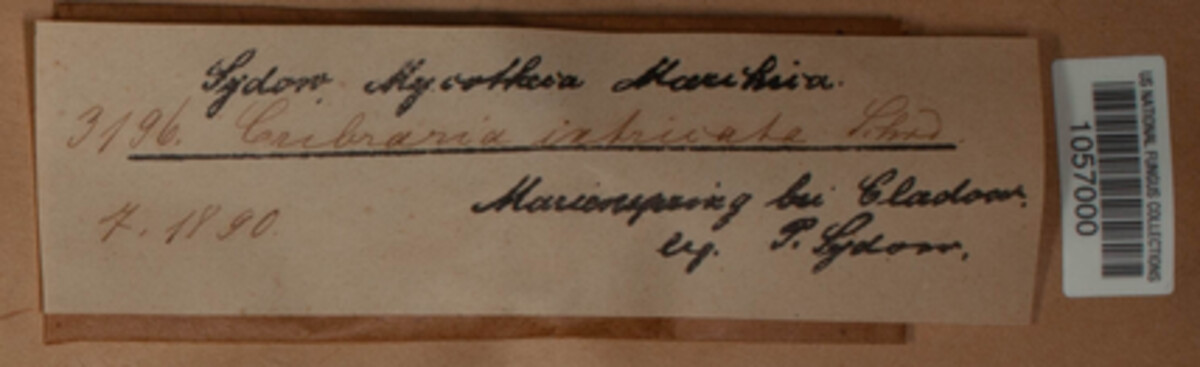 Sydow, Mycotheca Marchica.
3196. Cribraria intricata Schrd.
Marienspring bei Cladow.
7. 1890
leg. P. Sydow.
US NATIONAL FUNGUS COLLECTIONS
1057000